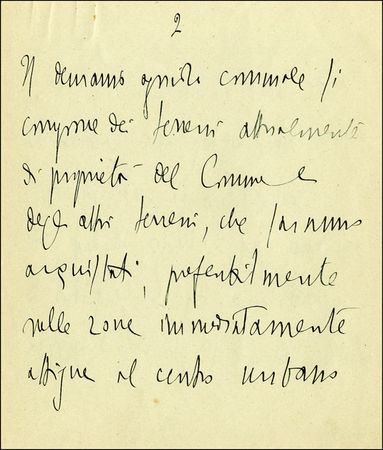 2
Il demanio agricolo comunale si
compone dei terreni attualmente
di proprietà del Comune e
degli altri terreni, che saranno
acquistati, preferibilmente
nelle zone immediatamente
attigue al centro urbano